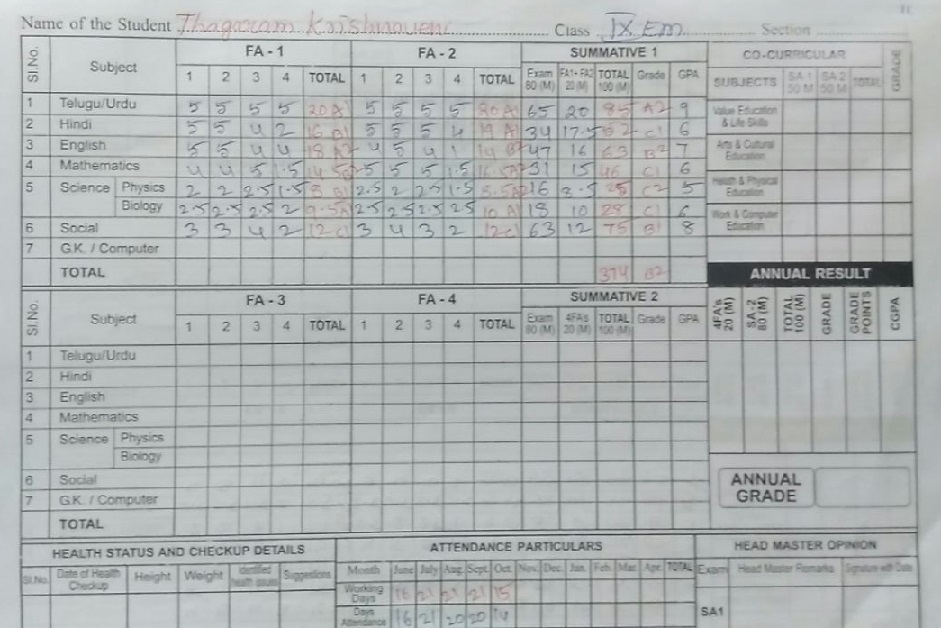 Name of the Student Thagaram Krishnaveni Class IX EM Section
Sl.No. Subject FA - 1 FA - 2 SUMMATIVE 1 CO-CURRICULAR GRADE
1 2 3 4 TOTAL 1 2 3 4 TOTAL Exam 80 (M) FA1+ FA2 20 (M) TOTAL 100 (M) Grade GPA SUBJECTS SA 1 50 M SA 2 50 M TOTAL
1 Telugu/Urdu 5 5 5 5 20 A1 5 5 5 5 20 A1 65 20 85 A2 9 Value Education & Life Skills
2 Hindi 5 5 4 2 16 B1 5 5 5 4 19 A1 34 17.5 52 C1 6
3 English 5 5 4 4 18 A2 4 5 4 1 14 B2 47 16 63 B2 7 Arts & Cultural Education
4 Mathematics 4 4 5 1.5 14.5 5 5 5 1.5 16.5 31 15 46 C1 6
5 Science Physics 2 2 2.5 1.5 8 B1 2.5 2 2.5 1.5 8.5 A2 16 8.5 25 C2 5 Health & Physical Education
Biology 2.5 2.5 2.5 2 9.5 A1 2.5 2.5 2.5 2.5 10 A1 18 10 28 C1 6 Work & Computer Education
6 Social 3 3 4 2 12 C1 3 4 3 2 12 C1 63 12 75 B1 8
7 G.K. / Computer
TOTAL 374 B2 ANNUAL RESULT
Sl.No. Subject FA - 3 FA - 4 SUMMATIVE 2 4FA's 20 (M) SA - 2 80 (M) TOTAL 100 (M) GRADE GRADE POINTS CGPA
1 2 3 4 TOTAL 1 2 3 4 TOTAL Exam 80 (M) 4FAs 20 (M) TOTAL 100 (M) Grade GPA
1 Telugu/Urdu
2 Hindi
3 English
4 Mathematics
5 Science Physics
Biology
6 Social
7 G.K. / Computer
TOTAL
ANNUAL GRADE
HEALTH STATUS AND CHECKUP DETAILS ATTENDANCE PARTICULARS HEAD MASTER OPINION
Sl.No. Date of Health Checkup Height Weight Identified health issues Suggestions Month June July Aug. Sept. Oct. Nov. Dec. Jan. Feb. Mar. Apr. TOTAL Exam Head Master Remarks Signature with Date
Working Days 16 21 21 21 15
Days Attendance 16 21 20 20 14 SA1